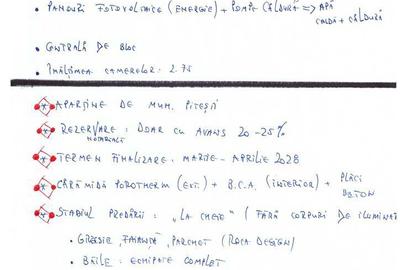 • PANOURI FOTOVOLTAICE (ENERGIE) + POMPE CĂLDURĂ => APĂ
CALDĂ + CĂLDURĂ
• CENTRALĂ DE BLOC
• ÎNĂLȚIMEA CAMERELOR: 2.75
APARȚINE DE MUN. PITEȘTI
REZERVARE: DOAR CU AVANS 20-25%
NOTARIALĂ
TERMEN FINALIZARE: MARTIE - APRILIE 2028
CĂRĂMIDĂ POROTHERM (EXT.) + B.C.A. (INTERIOR) + PLĂCI
BETON
STADIUL PREDĂRII: "LA CHEIE" (FĂRĂ CORPURI DE ILUMINAT
• GRESIE, FAIANȚĂ, PARCHET (ROCA DESIGN)
• BĂILE: ECHIPATE COMPLET